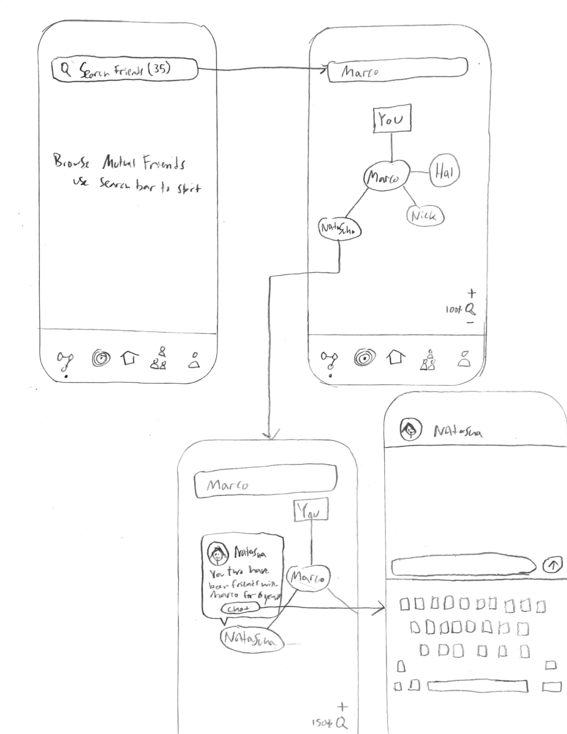 Search Friends (35)
Browse Mutual Friends
use search bar to start
Marco
You
Marco
Hal
Nick
Natasha
+
100%
-
Marco
You
Natasha
You two have
been friends with
Marco for 6 years
chat
Marco
Natasha
+
150%
Natasha